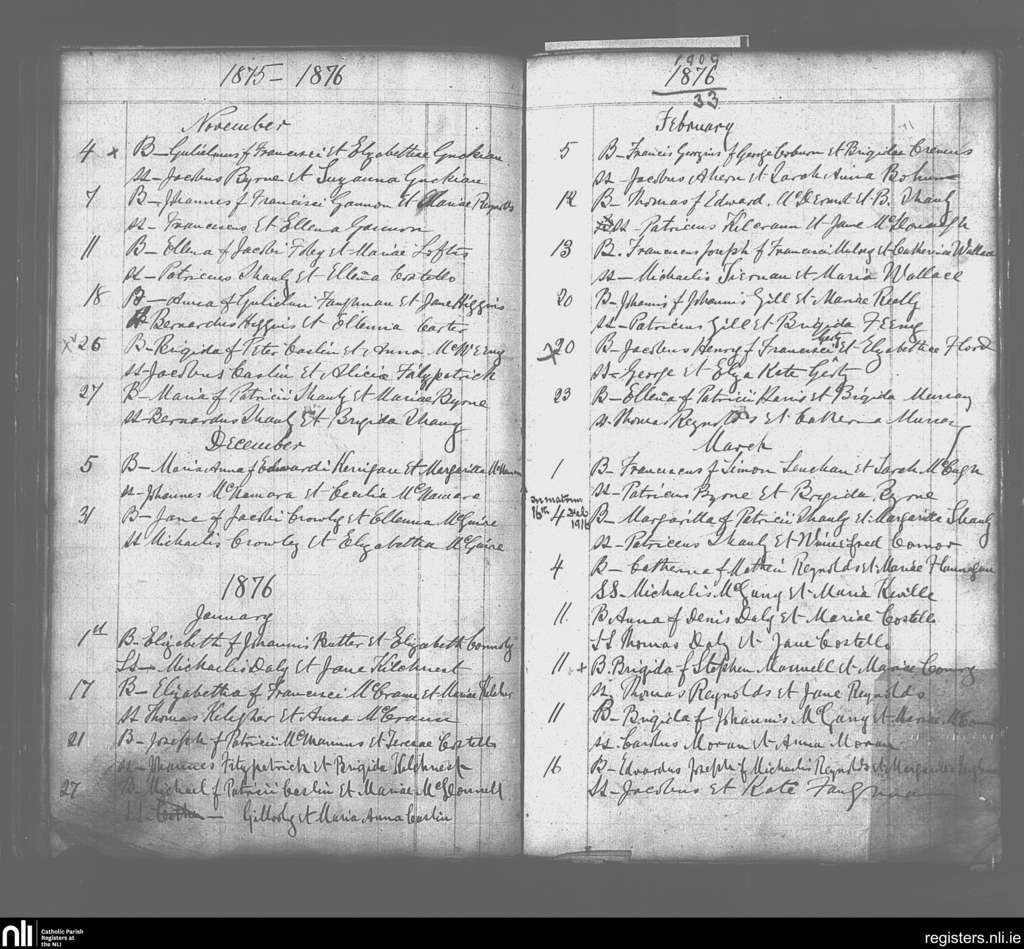 1875 – 1876
November
4 x B – Gulielmus f Francisci et Elizabethae Guckian
ss – Jacobus Byrne et Suzanna Guckian
7 B – Johannis f Francisci Gannon et Mariae Reynolds
ss – Franciscus et Ellena Gannon
11 B – Ellena f Jacobi Foley et Mariae Loftis
ss – Patricius Shanly et Ellena Costello
18 B – Anna f Gulielmi Faughnan et Jane Higgins
Bernardus Higgins et Ellenna Carter
x 26 B – Brigida f Peter Caslin et Anna
ss – Jacobus Caslin et Alicia Fitzpatrick
27 B – Maria f Patricii Shanly et Mariae Byrne
ss – Bernardus Shanly et Brigida Shanly
December
5 B – Maria Anna f Edwardi Kerrigan et Margaritta McNamara
ss – Johannes McNamara et Cecilia McNamara
31 B – Jane f Jacobi Crowly et Ellenna McGuire
ss Michaelis Crowley et Elizabetha McGuire
1876
January
1st B – Elizabeth f Johannis Rutter et Elizabeth Connoly
SS – Michaelis Daly et Jane
17 B – Elizabetha f Francisci McCrann et Mariae
ss Thomas et Anna McCrann
21 B – Joseph f Patricii McManus et Teresae Costello
ss – Johannes Fitzpatrick et Brigida
27 B – Michael f Patricii Caslin et Mariae McDonnell
SS – Gillooly et Maria Anna Caslin
1909
1876
33
February
5 B – Francis Georgius f George Coburn et Brigidae
ss – Jacobus Ahern et Sarah Anna Bohan
12 B – Thomas f Edward McDermot et B. Shanly
ss – Patricius Kilcrann et Jane McDonough
13 B. Franciscus Joseph f Francisci Mulvey et Catherina Wallace
ss – Michaelis Tiernan et Maria Wallace
20 B – Johannis f Johannis Gill et Mariae Reilly
ss – Patricius Gill et Brigida Feeny
x 20 B – Jacobus Henry f Francisci et Elizabethae Flord
ss – George et Eliza Kate
23 B – Ellena f Patricii Harris et Brigida Murray
ss. Thomas Reynolds et Catherina Murray
March
1 B – Franciscus f Simon Lenehan et Sarah McHugh
ss – Patricius Byrne et Brigida Byrne
16th 4 Feb 1916 B – Margaritta f Patricii Shanly et Margaritta Shanly
ss – Patricius Shanly et Winnifred Connor
4 B – Catherina f Mathew Reynolds et Mariae Flannagan
SS – Michaelis McGarry et Maria Keville
11. B Anna f Denis Daly et Mariae Costello
SS Thomas Daly et Jane Costello
11 x B. Brigida f Stephen Mannell et Mariae
ss. Thomas Reynolds et Jane Reynolds
11 B – Brigida f Johannis McGarry et Mariae
ss. Carolus Moran et Anna Moran
16 B – Edvardus Joseph f Michaelis Reynolds et Margaritta
ss – Jacobus et Kate Faughnan
nli Catholic Parish
Registers at
the NLI
registers.nli.ie